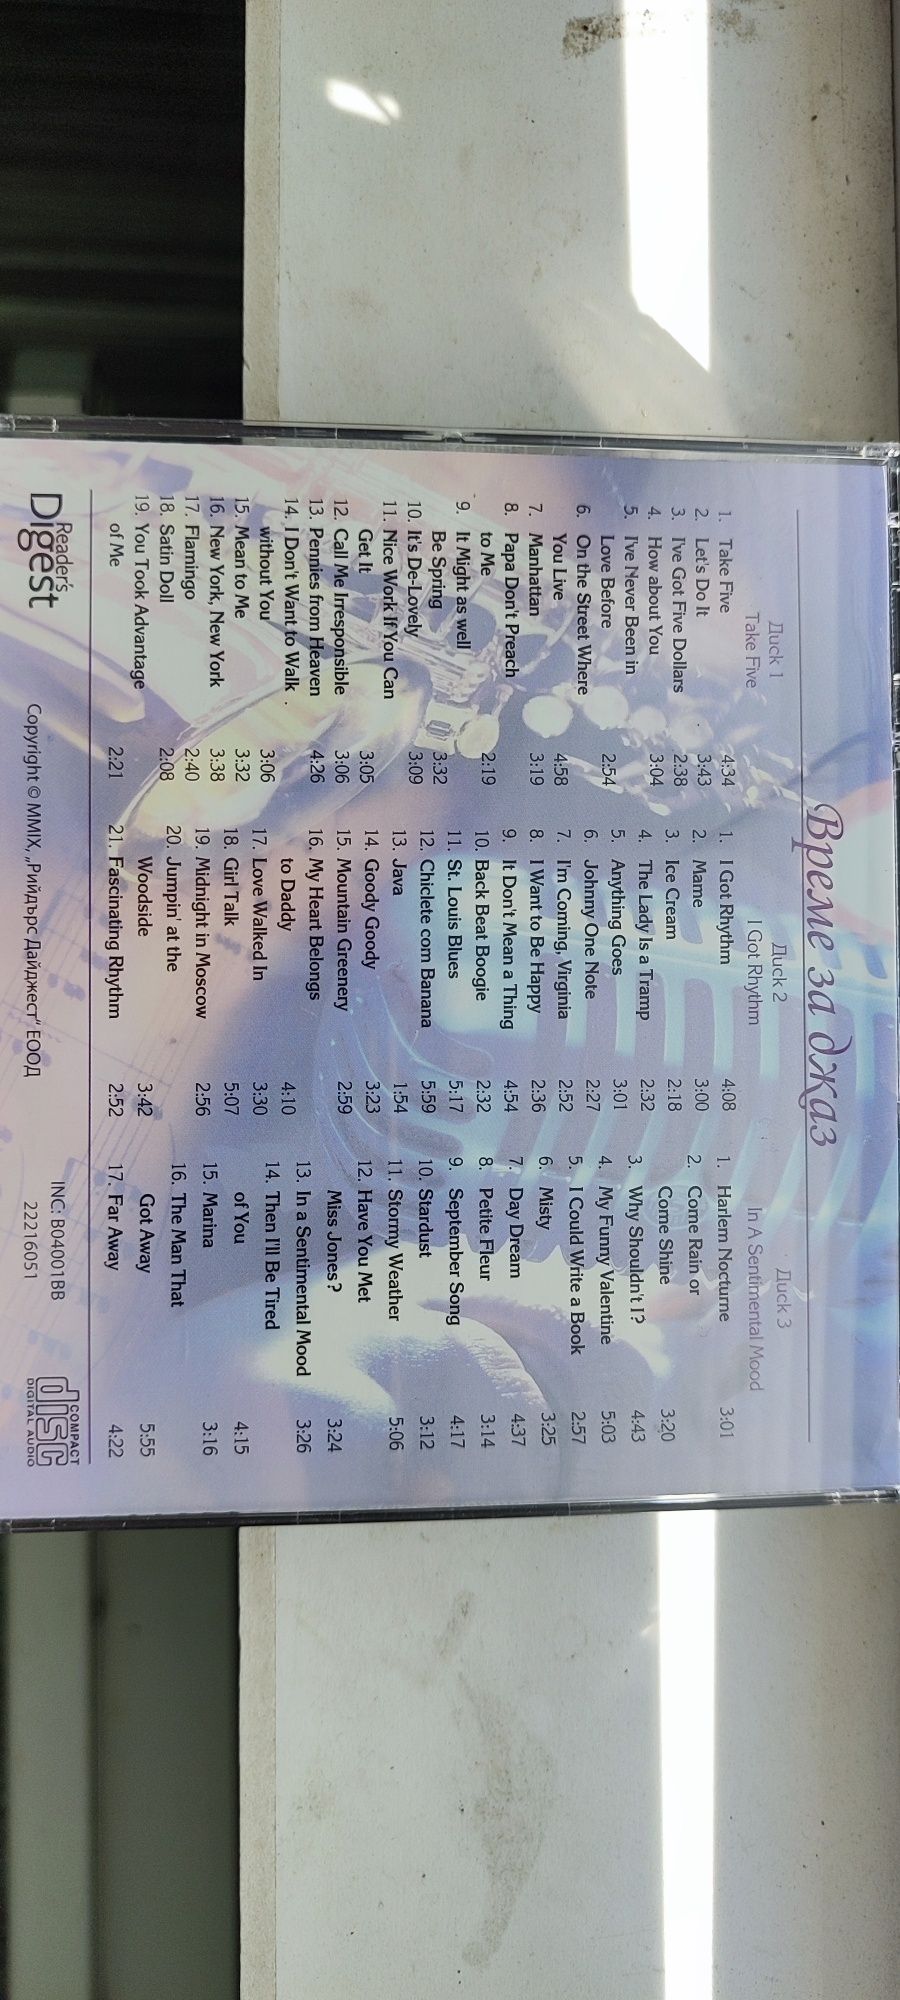 Време за джаз
Диск 1
Take Five
1. Take Five 4:34
2. Let's Do It 3:43
3. I've Got Five Dollars 2:38
4. How about You 3:04
5. I've Never Been in
Love Before 2:54
6. On the Street Where
You Live 4:58
7. Manhattan 3:19
8. Papa Don't Preach
to Me 2:19
9. It Might as well
Be Spring 3:32
10. It's De-Lovely 3:09
11. Nice Work If You Can
Get It 3:05
12. Call Me Irresponsible 3:06
13. Pennies from Heaven 4:26
14. I Don't Want to Walk
without You 3:06
15. Mean to Me 3:32
16. New York, New York 3:38
17. Flamingo 2:40
18. Satin Doll 2:08
19. You Took Advantage
of Me 2:21
Диск 2
I Got Rhythm
1. I Got Rhythm 4:08
2. Mame 3:00
3. Ice Cream 2:18
4. The Lady Is a Tramp 2:32
5. Anything Goes 3:01
6. Johnny One Note 2:27
7. I'm Coming, Virginia 2:52
8. I Want to Be Happy 2:36
9. It Don't Mean a Thing 4:54
10. Back Beat Boogie 2:32
11. St. Louis Blues 5:17
12. Chiclete com Banana 5:59
13. Java 1:54
14. Goody Goody 3:23
15. Mountain Greenery 2:59
16. My Heart Belongs
to Daddy 4:10
17. Love Walked In 3:30
18. Girl Talk 5:07
19. Midnight in Moscow 2:56
20. Jumpin' at the
Woodside 3:42
21. Fascinating Rhythm 2:52
Диск 3
In A Sentimental Mood
1. Harlem Nocturne 3:01
2. Come Rain or
Come Shine 3:20
3. Why Shouldn't I? 4:43
4. My Funny Valentine 5:03
5. I Could Write a Book 2:57
6. Misty 3:25
7. Day Dream 4:37
8. Petite Fleur 3:14
9. September Song 4:17
10. Stardust 3:12
11. Stormy Weather 5:06
12. Have You Met
Miss Jones? 3:24
13. In a Sentimental Mood 3:26
14. Then I'll Be Tired
of You 4:15
15. Marina 3:16
16. The Man That
Got Away 5:55
17. Far Away 4:22
Reader's
Digest
Copyright © MMIX, „Рийдърс Дайджест“ ЕООД
INC: B04001BB
22216051
COMPACT
disc
DIGITAL AUDIO